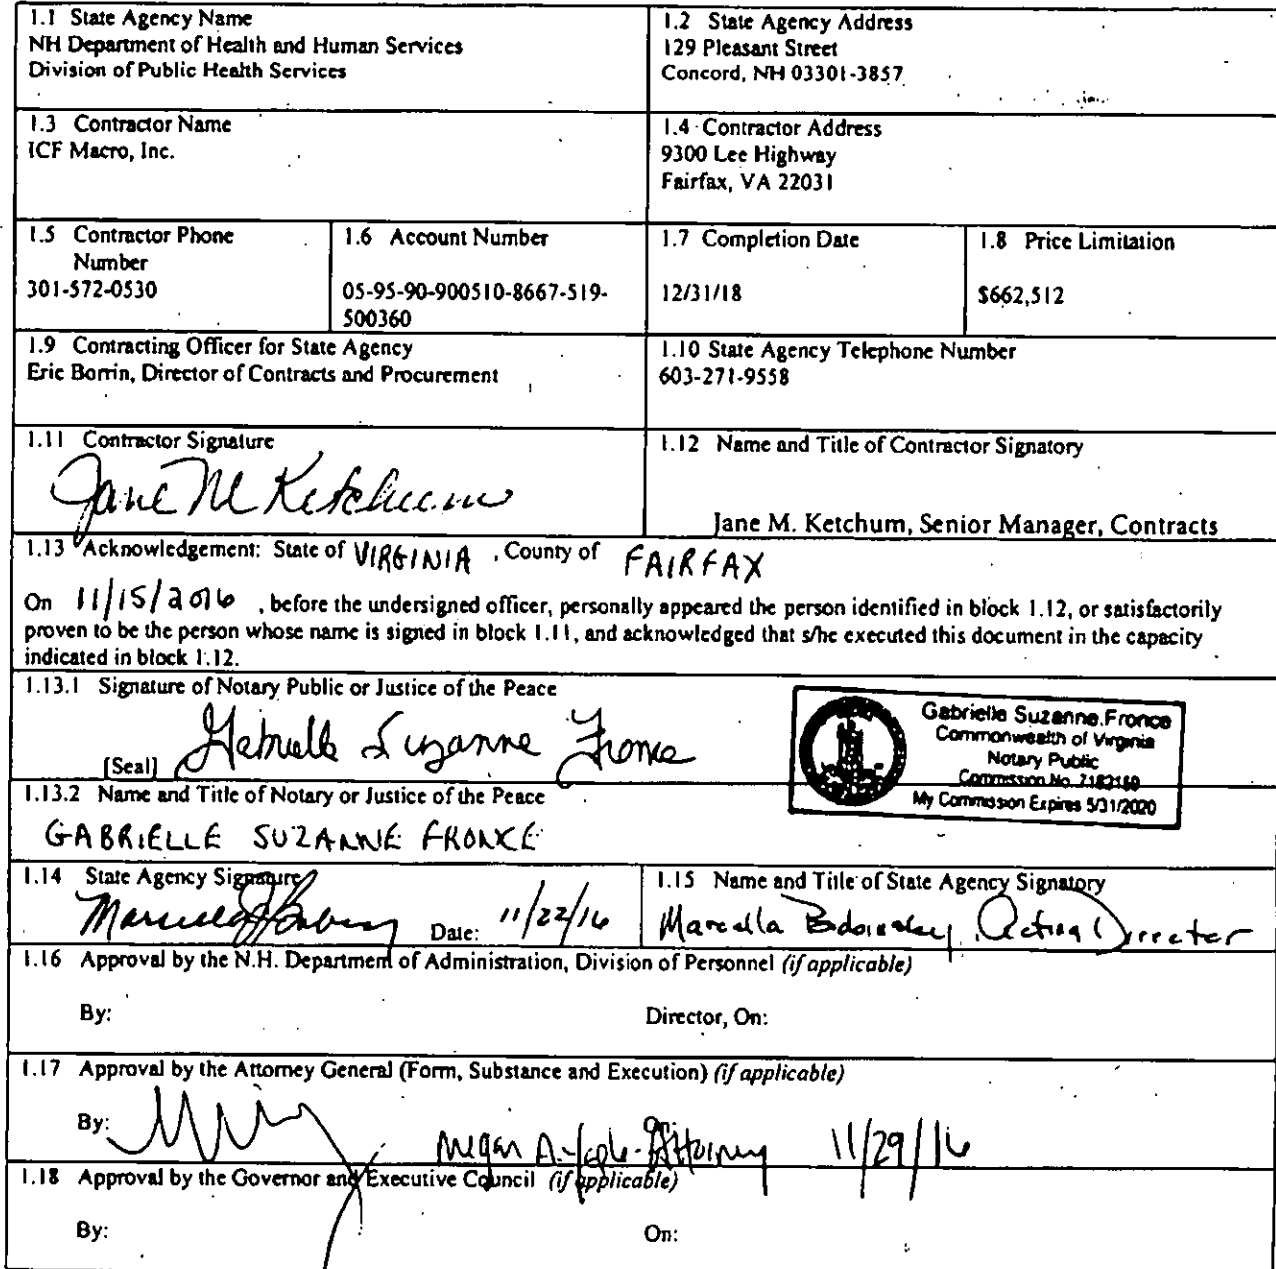 1.1 State Agency Name
NH Department of Health and Human Services
Division of Public Health Services
1.2 State Agency Address
129 Pleasant Street
Concord, NH 03301-3857
1.3 Contractor Name
ICF Macro, Inc.
1.4 Contractor Address
9300 Lee Highway
Fairfax, VA 22031
1.5 Contractor Phone
Number
301-572-0530
1.6 Account Number
05-95-90-900510-8667-519-
500360
1.7 Completion Date
12/31/18
1.8 Price Limitation
$662,512
1.9 Contracting Officer for State Agency
Eric Borrin, Director of Contracts and Procurement
1.10 State Agency Telephone Number
603-271-9558
1.11 Contractor Signature
Jane M Ketchum
1.12 Name and Title of Contractor Signatory
Jane M. Ketchum, Senior Manager, Contracts
1.13 Acknowledgement: State of VIRGINIA , County of FAIRFAX
On 11/15/2016 , before the undersigned officer, personally appeared the person identified in block 1.12, or satisfactorily
proven to be the person whose name is signed in block 1.11, and acknowledged that s/he executed this document in the capacity
indicated in block 1.12.
1.13.1 Signature of Notary Public or Justice of the Peace
Gabrielle Suzanne Fronce
[Seal]
Gabrielle Suzanne Fronce
Commonwealth of Virginia
Notary Public
Commission No. 7182160
My Commission Expires 5/31/2020
1.13.2 Name and Title of Notary or Justice of the Peace
GABRIELLE SUZANNE FRONCE
1.14 State Agency Signature
Date: 11/22/16
1.15 Name and Title of State Agency Signatory
Marcella Acting Director
1.16 Approval by the N.H. Department of Administration, Division of Personnel (if applicable)
By:
Director, On:
1.17 Approval by the Attorney General (Form, Substance and Execution) (if applicable)
By:
On:
Megan A. - Attorney 11/29/16
1.18 Approval by the Governor and Executive Council (if applicable)
By:
On: